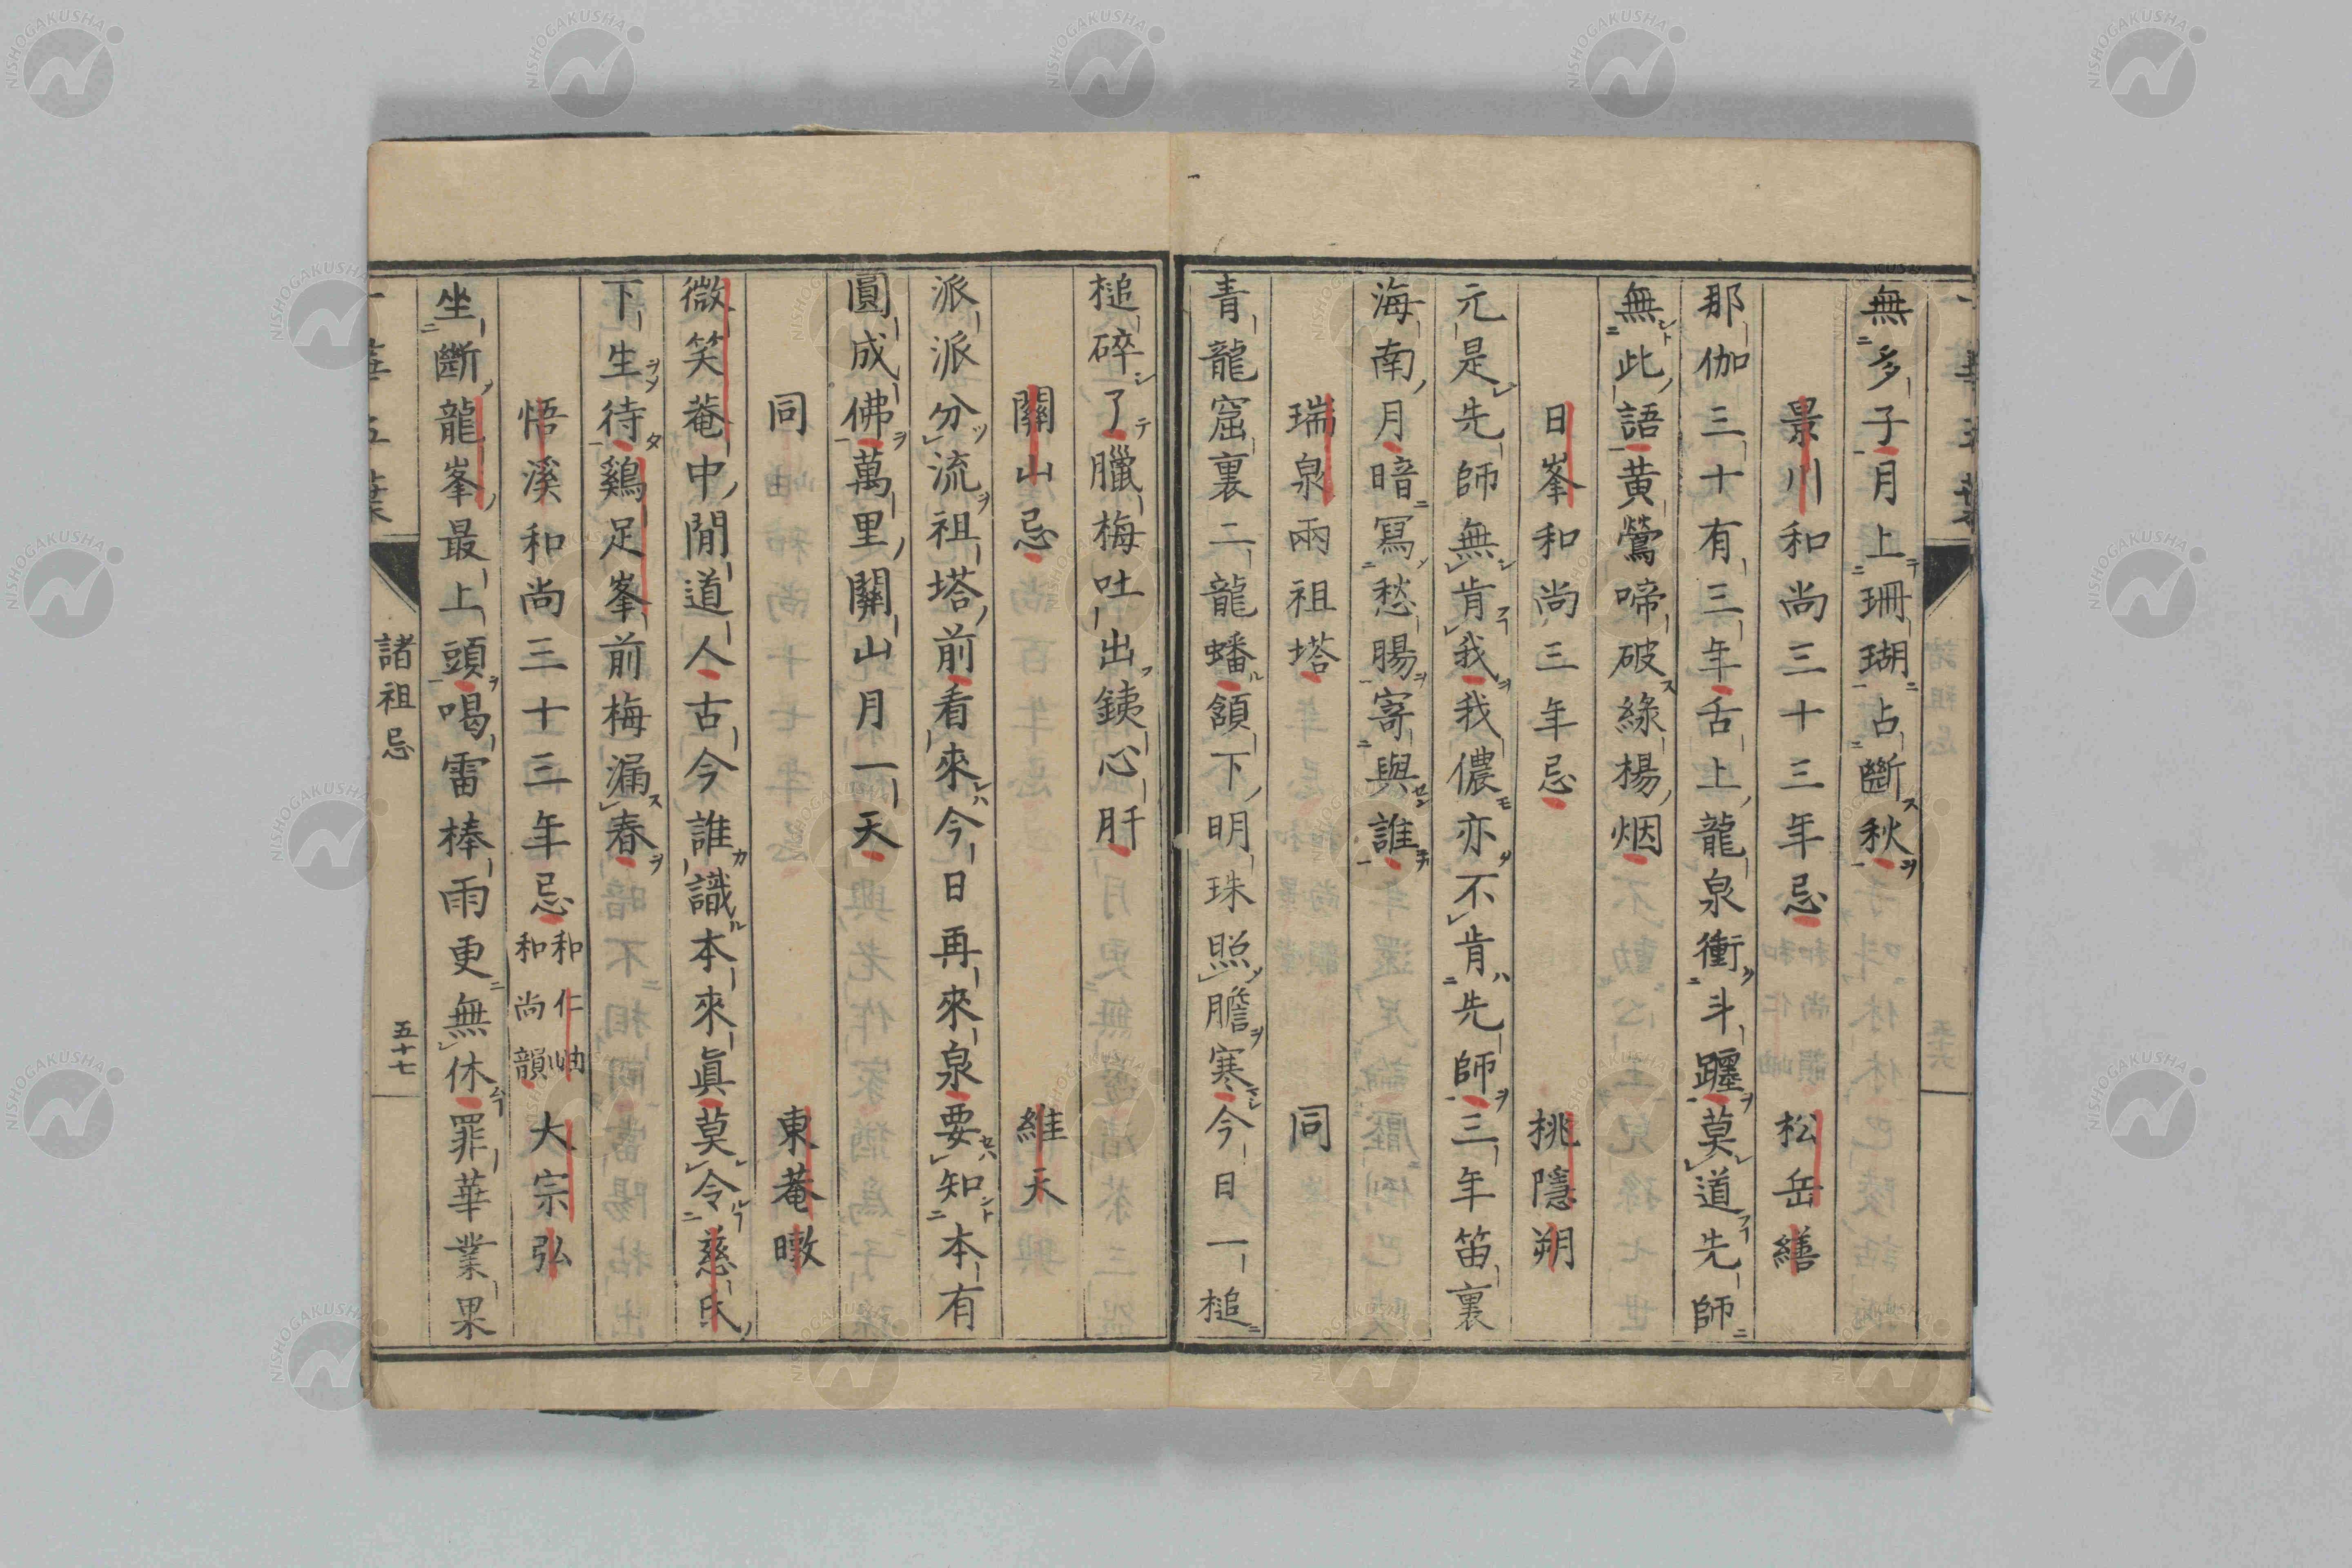 無多子月上珊瑚占斷秋
景川和尚三十三年忌 松岳繕
那伽三十有三年舌上龍泉衝斗躔莫道先師
無此語黄鶯啼破緑楊烟
日峯和尚三年忌 桃隱朔
元是先師無肯我我儂亦不肯先師三年笛裏
海南月暗冩愁腸寄與誰
瑞泉兩祖塔 同
青龍窟裏二龍蟠頷下明珠照膽寒今日一槌
槌碎了臘梅吐出銕心肝
關山忌 維天
派派分流祖塔前看來今日再來泉要知本有
圓成佛萬里關山月一天
同 東菴暾
微笑菴中閒道人古今誰識本來眞莫令慈氏
下生待鷄足峯前梅漏春
悟溪和尚三十三年忌 和仁岫和尚韻 大宗弘
坐斷龍峯最上頭喝雷棒雨更無休罪華業果
諸祖忌 五十七